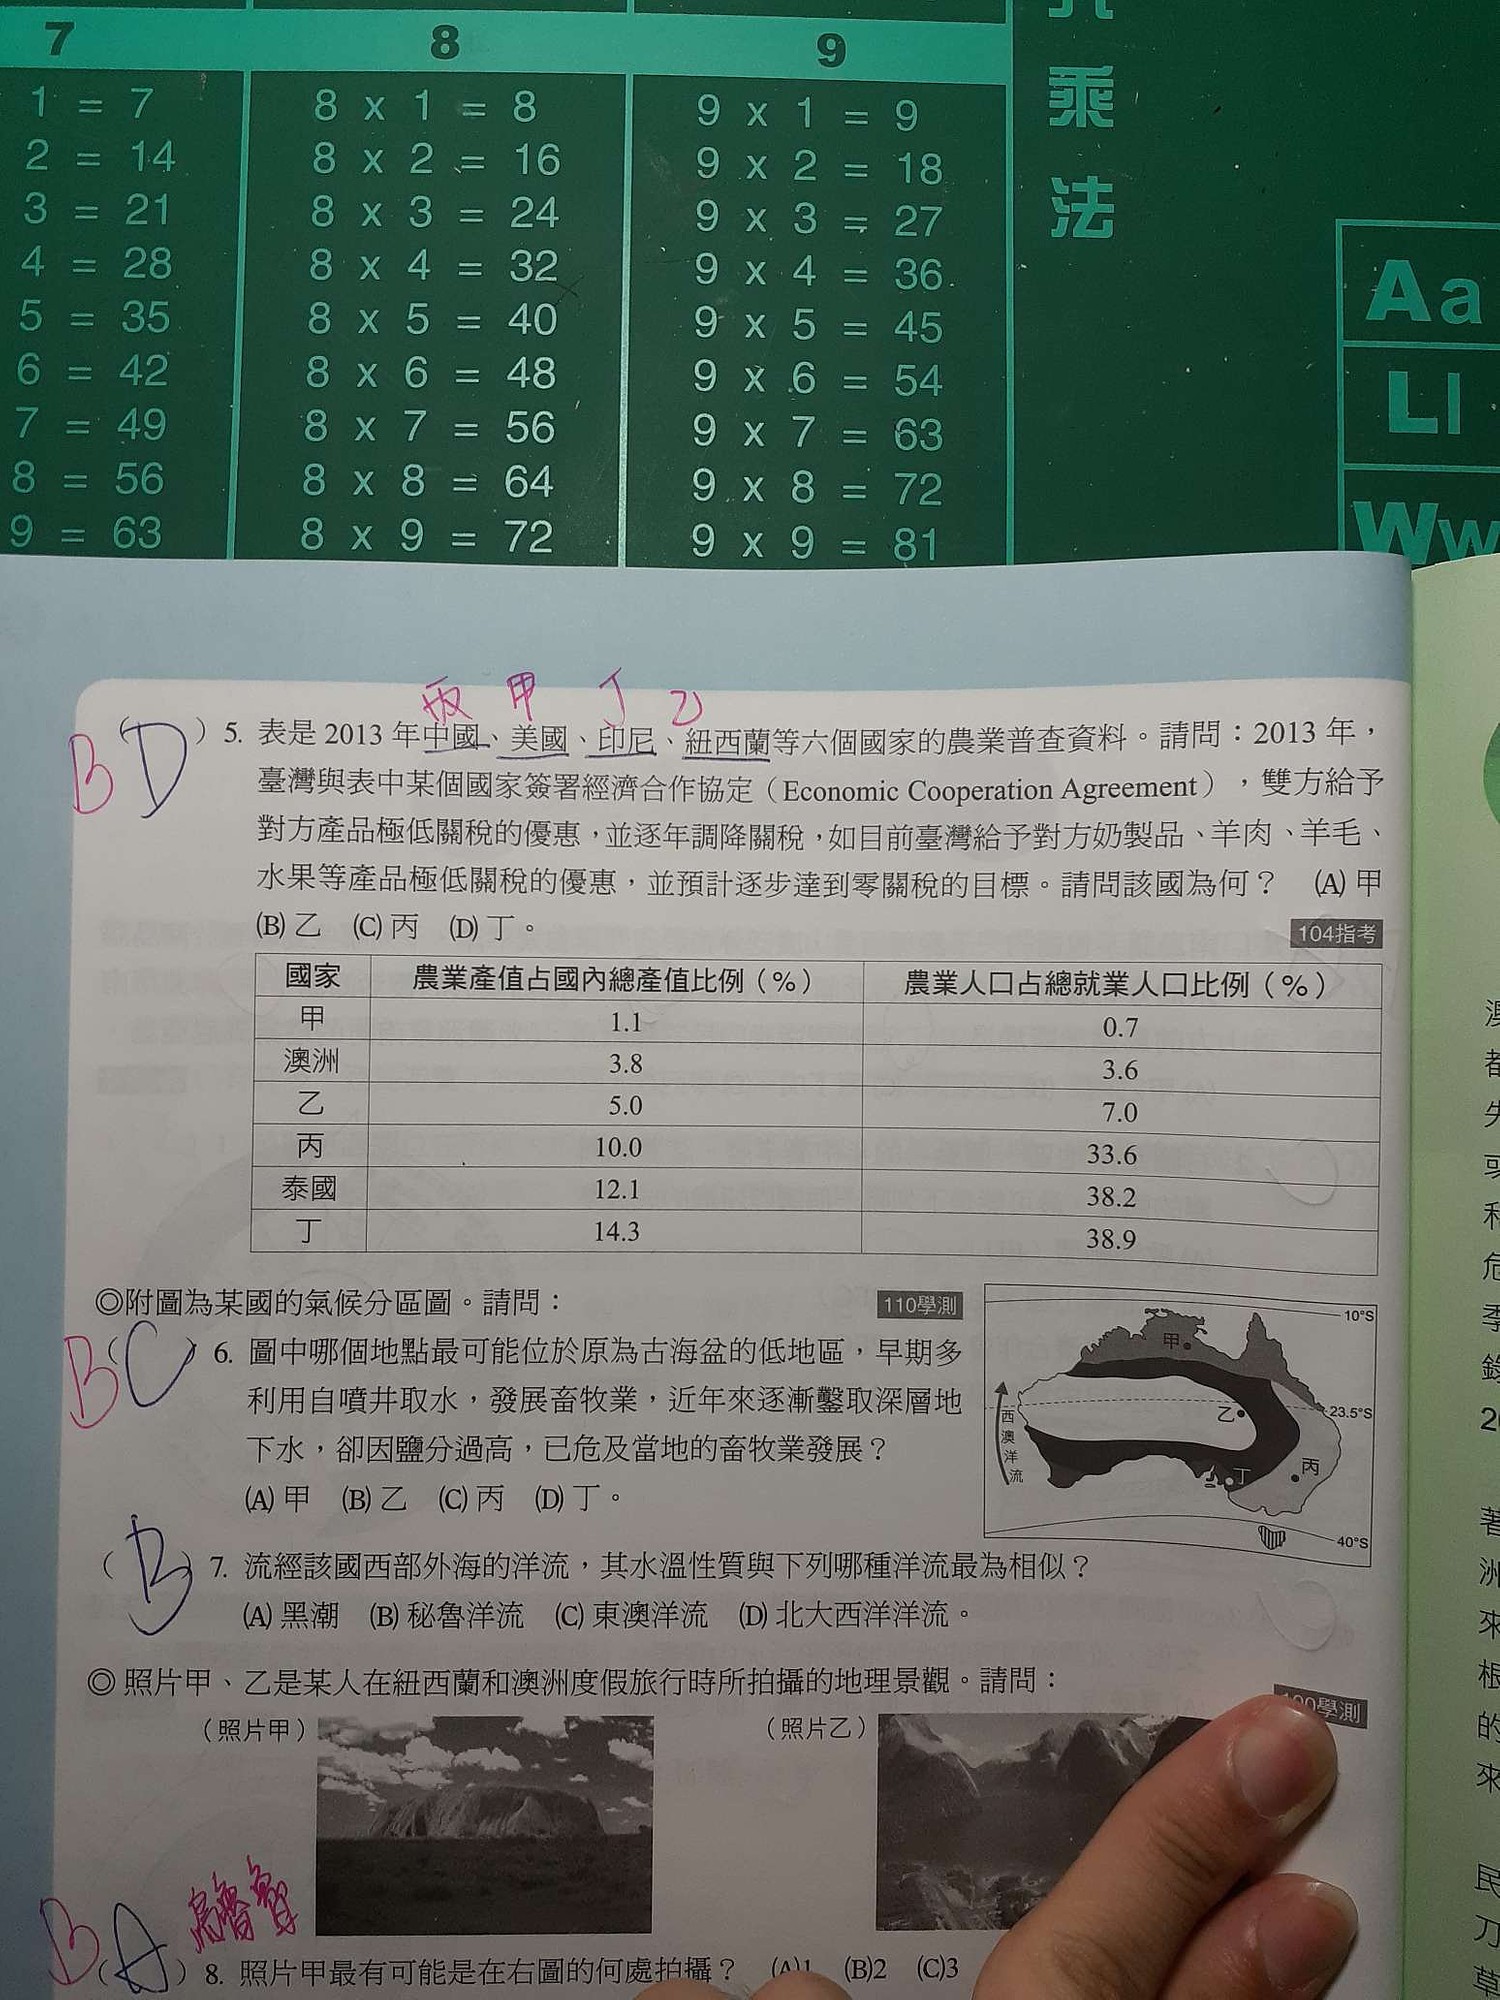 7 8 9
1 = 7 8 x 1 = 8 9 x 1 = 9
2 = 14 8 x 2 = 16 9 x 2 = 18
3 = 21 8 x 3 = 24 9 x 3 = 27
4 = 28 8 x 4 = 32 9 x 4 = 36
5 = 35 8 x 5 = 40 9 x 5 = 45
6 = 42 8 x 6 = 48 9 x 6 = 54
7 = 49 8 x 7 = 56 9 x 7 = 63
8 = 56 8 x 8 = 64 9 x 8 = 72
9 = 63 8 x 9 = 72 9 x 9 = 81
乘法
Aa
Ll
Ww
丙 甲 丁 乙
B (D) 5. 表是 2013 年中國、美國、印尼、紐西蘭等六個國家的農業普查資料。請問：2013 年，
臺灣與表中某個國家簽署經濟合作協定（Economic Cooperation Agreement），雙方給予
對方產品極低關稅的優惠，並逐年調降關稅，如目前臺灣給予對方奶製品、羊肉、羊毛、
水果等產品極低關稅的優惠，並預計逐步達到零關稅的目標。請問該國為何？ (A) 甲
(B) 乙 (C) 丙 (D) 丁。 104指考
國家 農業產值占國內總產值比例（%） 農業人口占總就業人口比例（%）
甲 1.1 0.7
澳洲 3.8 3.6
乙 5.0 7.0
丙 10.0 33.6
泰國 12.1 38.2
丁 14.3 38.9
◎附圖為某國的氣候分區圖。請問： 110學測
B (C) 6. 圖中哪個地點最可能位於原為古海盆的低地區，早期多
利用自噴井取水，發展畜牧業，近年來逐漸鑿取深層地
下水，卻因鹽分過高，已危及當地的畜牧業發展？
(A) 甲 (B) 乙 (C) 丙 (D) 丁。
10°S
甲
23.5°S
乙
西澳洋流
丙
丁
40°S
(B) 7. 流經該國西部外海的洋流，其水溫性質與下列哪種洋流最為相似？
(A) 黑潮 (B) 秘魯洋流 (C) 東澳洋流 (D) 北大西洋洋流。
◎ 照片甲、乙是某人在紐西蘭和澳洲度假旅行時所拍攝的地理景觀。請問：
0學測
（照片甲） （照片乙）
B (A) 8. 照片甲最有可能是在右圖的何處拍攝？ (A)1 (B)2 (C)3